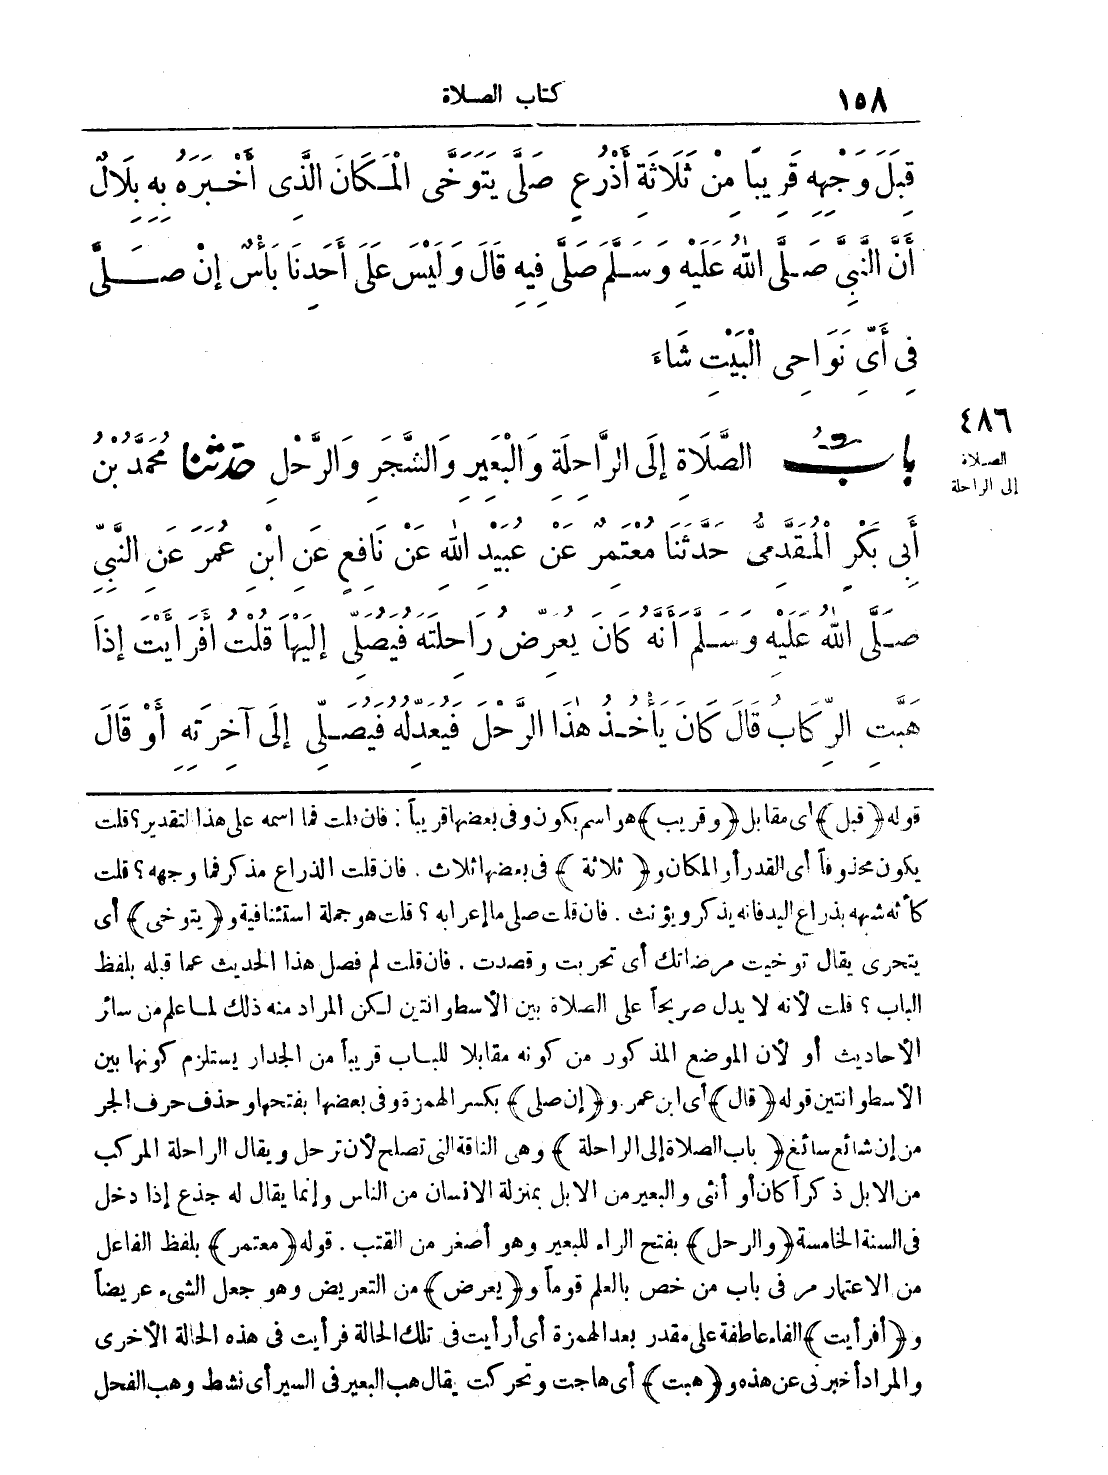 ١٥٨ كتاب الصلاة
قِبَلَ وَجْهِهِ قَرِيبًا مِنْ ثَلَاثَةِ أَذْرُعٍ صَلَّى يَتَوَخَّى الْمَكَانَ الَّذِى أَخْبَرَهُ بِهِ بِلَالٌ
أَنَّ النَّبِىَّ صَلَّى اللهُ عَلَيْهِ وَسَلَّمَ صَلَّى فِيهِ قَالَ وَلَيْسَ عَلَى أَحَدِنَا بَأْسٌ إِنْ صَلَّى
فِى أَىِّ نَوَاحِى الْبَيْتِ شَاءَ
٤٨٦
الصلاة
إلى الراحلة
بابُ الصَّلَاةِ إِلَى الرَّاحِلَةِ وَالْبَعِيرِ وَالشَّجَرِ وَالرَّحْلِ حَدَّثَنَا مُحَمَّدُ بْنُ
أَبِى بَكْرٍ الْمُقَدَّمِىُّ حَدَّثَنَا مُعْتَمِرٌ عَنْ عُبَيْدِ اللهِ عَنْ نَافِعٍ عَنِ ابْنِ عُمَرَ عَنِ النَّبِىِّ
صَلَّى اللهُ عَلَيْهِ وَسَلَّمَ أَنَّهُ كَانَ يُعَرِّضُ رَاحِلَتَهُ فَيُصَلِّى إِلَيْهَا قُلْتُ أَفَرَأَيْتَ إِذَا
هَبَّتِ الرِّكَابُ قَالَ كَانَ يَأْخُذُ هٰذَا الرَّحْلَ فَيُعَدِّلُهُ فَيُصَلِّى إِلَى آخِرَتِهِ أَوْ قَالَ
قوله ﴿قبل﴾ أى مقابل ﴿وقريب﴾ هو اسم يكون وفى بعضها قريباً: فان قلت فما اسمه على هذا التقدير؟ قلت
يكون محذوفاً أى القدر أو المكان و﴿ثلاثة﴾ فى بعضها ثلاث. فان قلت الذراع مذكر فما وجهه؟ قلت
كأنه شبهه بذراع اليد فانه يذكر ويؤنث. فان قلت صلى ما إعرابه؟ قلت هو جملة استئنافية و﴿يتوخى﴾ أى
يتحرى يقال توخيت مرضاتك أى تحريت وقصدت. فان قلت لم فصل هذا الحديث عما قبله بلفظ
الباب؟ قلت لأنه لا يدل صريحاً على الصلاة بين الأسطوانتين لكن المراد منه ذلك لما علم من سائر
الأحاديث أو لأن الموضع المذكور من كونه مقابلا للباب قريباً من الجدار يستلزم كونها بين
الأسطوانتين قوله ﴿قال﴾ أى ابن عمر. و﴿إن صلى﴾ بكسر الهمزة وفى بعضها بفتحها وحذف حرف الجر
من إن شائع سائغ ﴿باب الصلاة إلى الراحلة﴾ وهى الناقة التى تصلح لأن ترحل ويقال الراحلة المركب
من الابل ذكراً كان أو أنثى والبعير من الابل بمنزلة الانسان من الناس وإنما يقال له جذع إذا دخل
فى السنة الخامسة ﴿والرحل﴾ بفتح الراء للبعير وهو أصغر من القتب. قوله ﴿معتمر﴾ بلفظ الفاعل
من الاعتمار مر فى باب من خص بالعلم قوماً و﴿يعرض﴾ من التعريض وهو جعل الشىء عريضاً
و﴿أفرأيت﴾ الفاء عاطفة على مقدر بعد الهمزة أى أرأيت فى تلك الحالة فرأيت فى هذه الحالة الأخرى
والمراد أخبرنى عن هذه و﴿هبت﴾ أى هاجت وتحركت يقال هب البعير فى السير أى نشط وهب الفحل